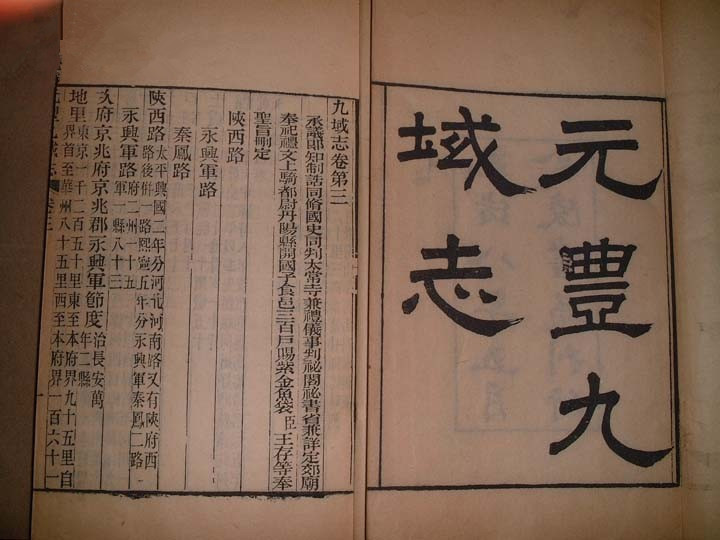 元豐九
域志
九域志卷第三
承議郎知制誥同脩國史同判太常寺兼禮儀事判祕閣祕書省兼詳定郊廟
奉祀禮文上騎都尉丹陽縣開國子食邑三百戶賜紫金魚袋臣王存等奉
聖旨刪定
陝西路
永興軍路
秦鳳路
陝西路太平興國二年分河北河南路又有陝府西
路後併一路熙寧五年分永興軍秦鳳二路
永興軍路府二州一十五
軍一縣八十三
次府京兆府京兆郡永興軍節度治長安萬
年二縣
地里東京一千二百五十里東至本府界九十五里自
界首至華州八十五里西至本府界一百六十一
元豐九域志 卷三